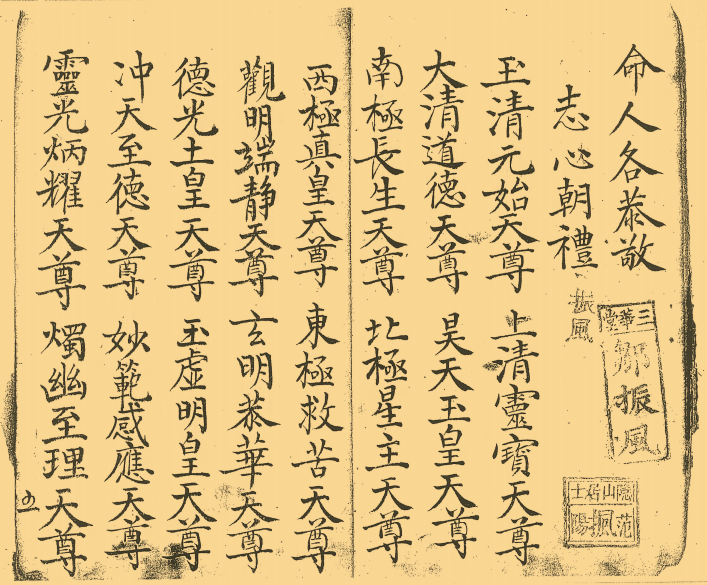 命人各恭敬
志心朝禮
振風
三華堂
鄒振風
隱山居士
玉清元始天尊 上清靈寶天尊
大清道德天尊 昊天玉皇天尊
南極長生天尊 北極星主天尊
西極真皇天尊 東極救苦天尊
觀明端靜天尊 玄明恭華天尊
德光土皇天尊 玉虛明皇天尊
冲天至德天尊 妙範感應天尊
靈光炳耀天尊 燭幽至理天尊